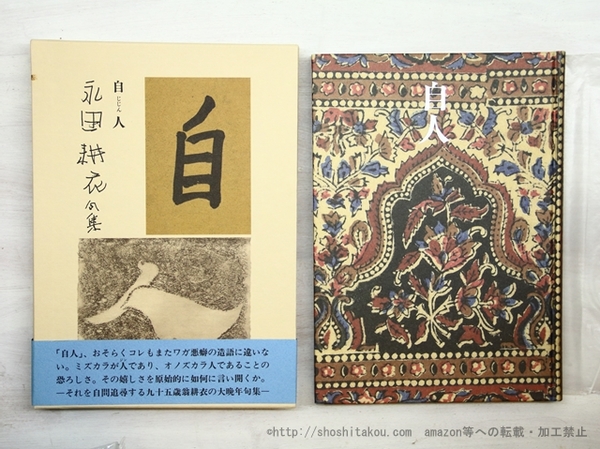 自人
じじん
永田耕衣句集
自
「自人」、おそらくコレもまたワガ悪癖の造語に違いな
い。ミズカラが人であり、オノズカラ人であることの
恐ろしさ。その嬉しさを原始的に如何に言い開くか。
―それを自問追尋する九十五歳翁耕衣の大晩年句集―
自人
©http://shoshitakou.com amazon等への転載・加工禁止